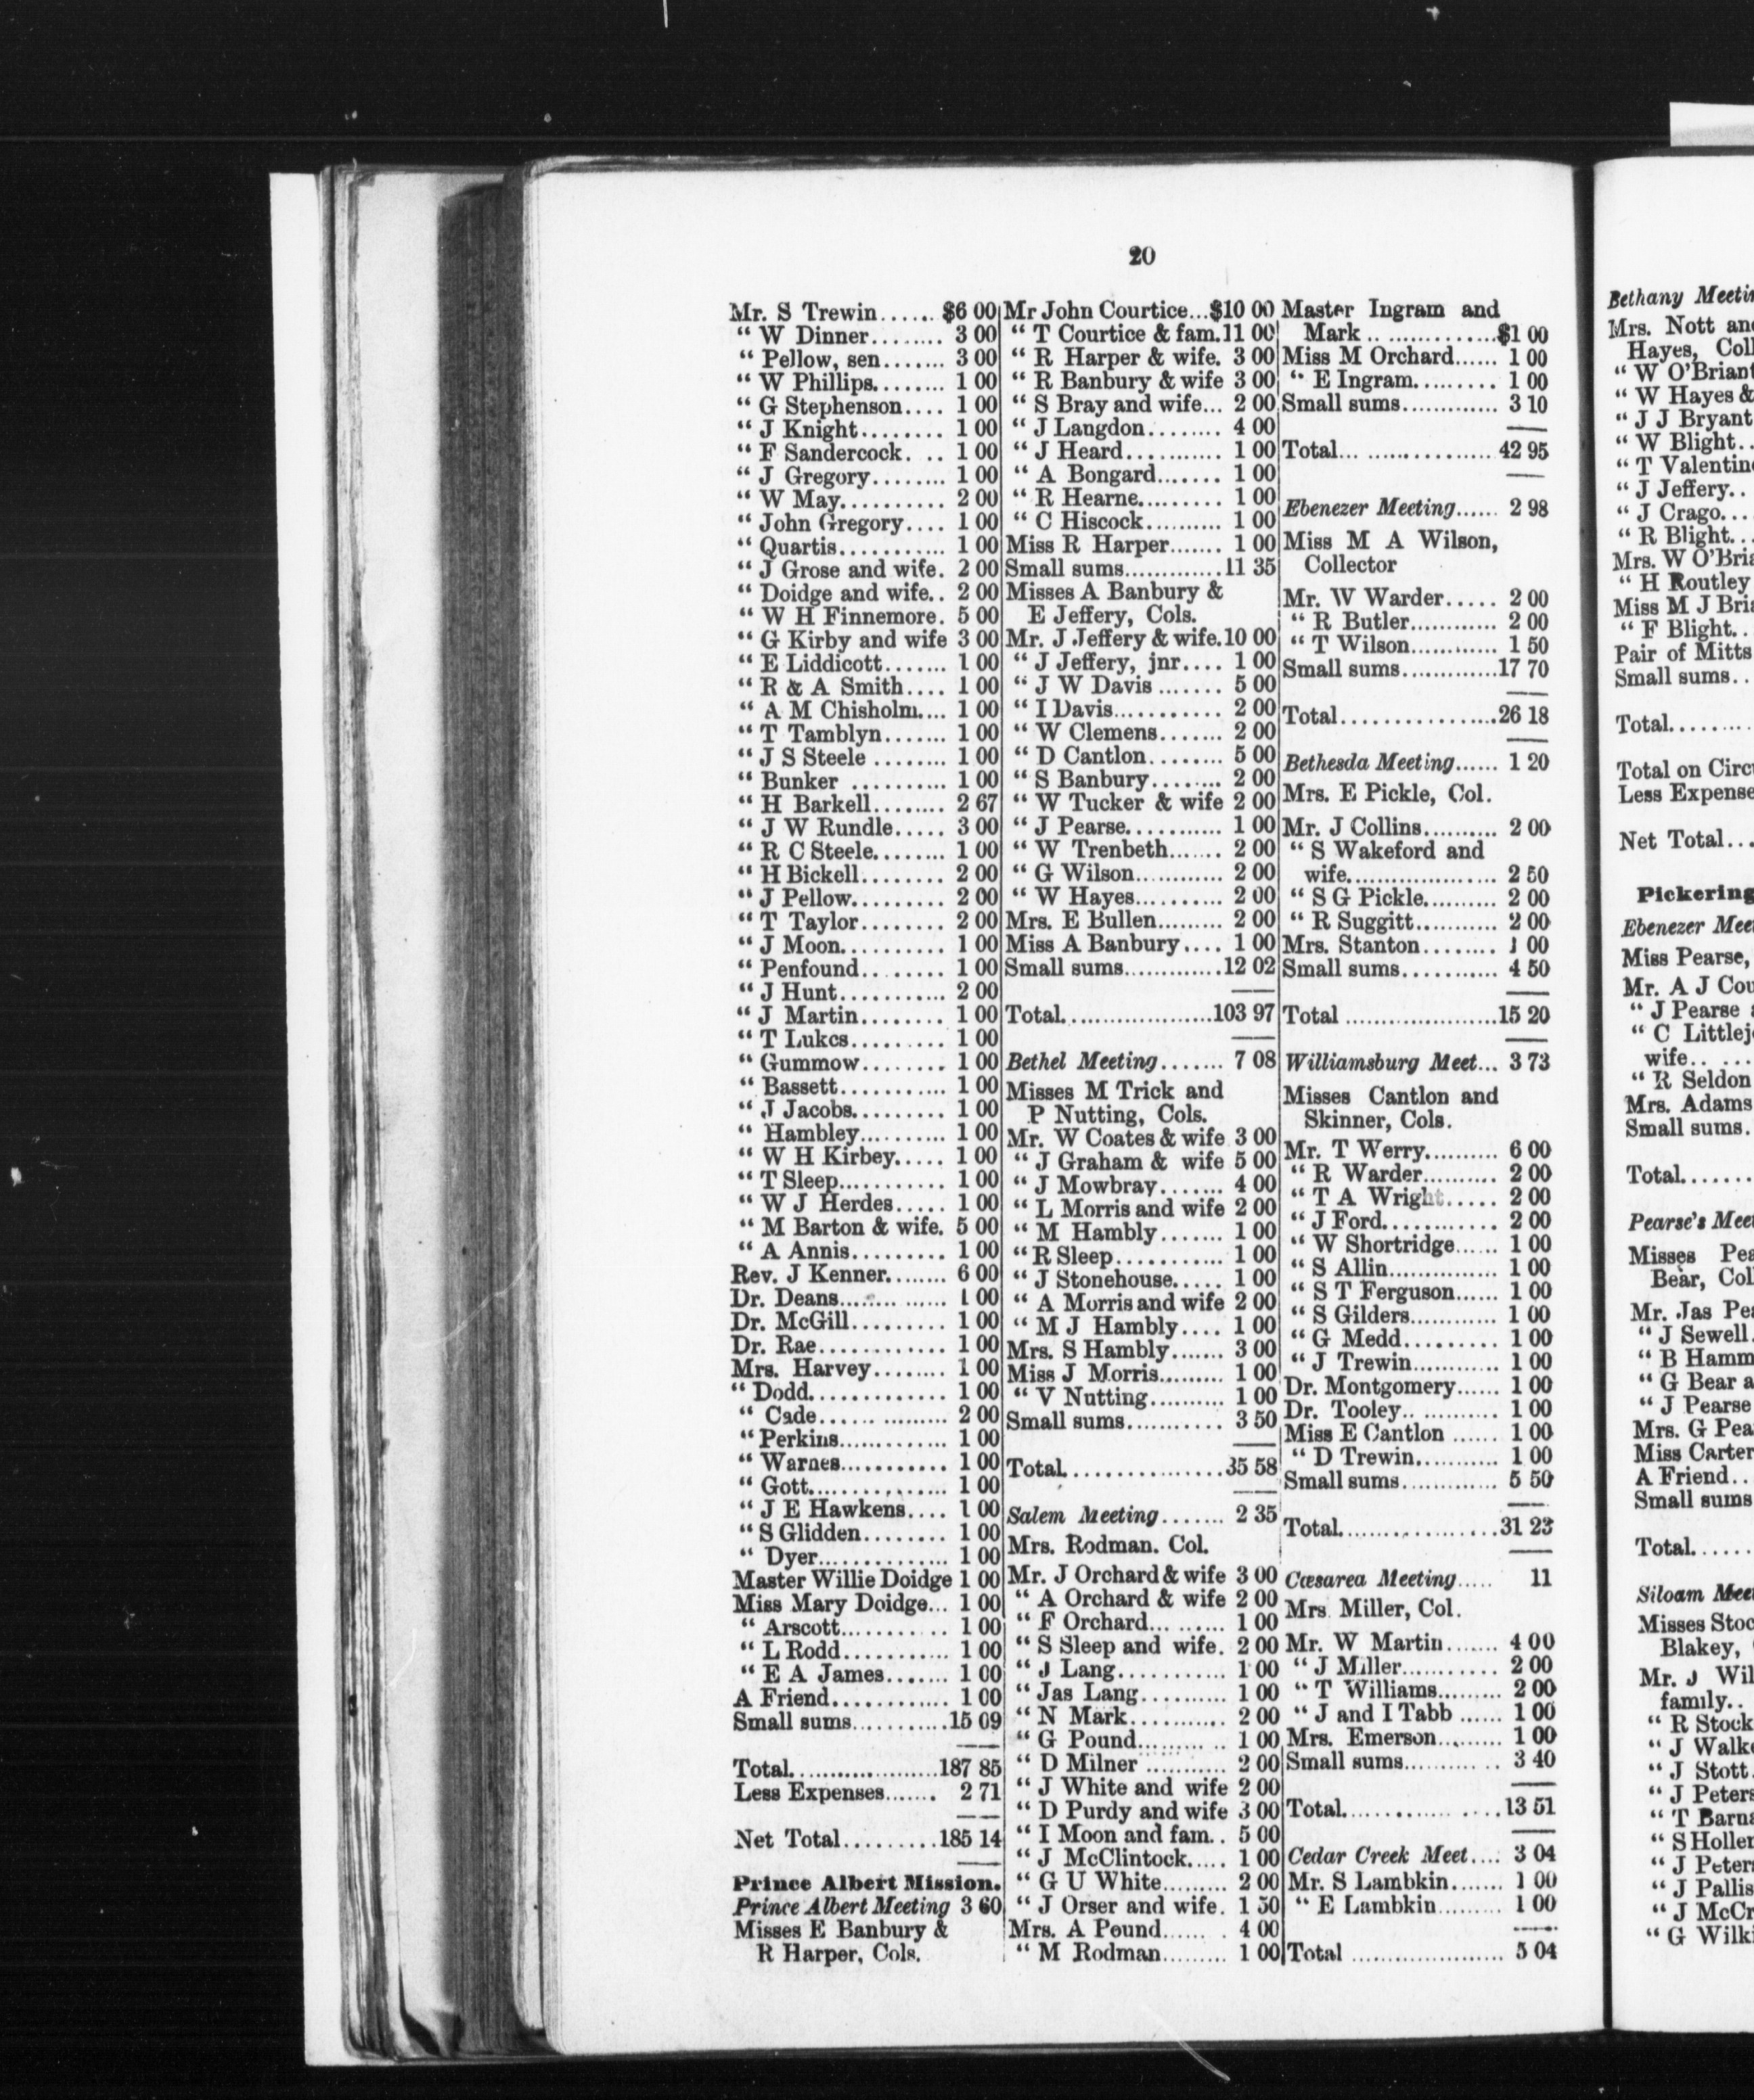 20
Mr. S Trewin...... $6 00
“ W Dinner........ 3 00
“ Pellow, sen....... 3 00
“ W Phillips........ 1 00
“ G Stephenson.... 1 00
“ J Knight........ 1 00
“ F Sandercock. .. 1 00
“ J Gregory........ 1 00
“ W May.......... 2 00
“ John Gregory.... 1 00
“ Quartis........... 1 00
“ J Grose and wife. 2 00
“ Doidge and wife.. 2 00
“ W H Finnemore. 5 00
“ G Kirby and wife 3 00
“ E Liddicott....... 1 00
“ R & A Smith.... 1 00
“ A M Chisholm.... 1 00
“ T Tamblyn....... 1 00
“ J S Steele ........ 1 00
“ Bunker .......... 1 00
“ H Barkell........ 2 67
“ J W Rundle..... 3 00
“ R C Steele........ 1 00
“ H Bickell........ 2 00
“ J Pellow......... 2 00
“ T Taylor........ 2 00
“ J Moon.......... 1 00
“ Penfound........ 1 00
“ J Hunt........... 2 00
“ J Martin........ 1 00
“ T Lukes......... 1 00
“ Gummow........ 1 00
“ Bassett........... 1 00
“ J Jacobs......... 1 00
“ Hambley.......... 1 00
“ W H Kirbey..... 1 00
“ T Sleep........... 1 00
“ W J Herdes..... 1 00
“ M Barton & wife. 5 00
“ A Annis......... 1 00
Rev. J Kenner........ 6 00
Dr. Deans........ ...... 1 00
Dr. McGill......... 1 00
Dr. Rae............. 1 00
Mrs. Harvey........ 1 00
“ Dodd............. 1 00
“ Cade...... .......... 2 00
“ Perkins............. 1 00
“ Warnes........... 1 00
“ Gott................ 1 00
“ J E Hawkens.... 1 00
“ S Glidden........ 1 00
“ Dyer.............. 1 00
Master Willie Doidge 1 00
Miss Mary Doidge... 1 00
“ Arscott........... 1 00
“ L Rodd........... 1 00
“ E A James....... 1 00
A Friend............ 1 00
Small sums..........15 09
Total....................187 85
Less Expenses....... 2 71
Net Total.........185 14
Prince Albert Mission.
Prince Albert Meeting 3 60
Misses E Banbury &
R Harper, Cols.
Mr John Courtice...$10 00
“ T Courtice & fam.11 00
“ R Harper & wife. 3 00
“ R Banbury & wife 3 00
“ S Bray and wife... 2 00
“ J Langdon........ 4 00
“ J Heard........... 1 00
“ A Bongard....... 1 00
“ R Hearne......... 1 00
“ C Hiscock.......... 1 00
Miss R Harper....... 1 00
Small sums.............11 35
Misses A Banbury &
E Jeffery, Cols.
Mr. J Jeffery & wife.10 00
“ J Jeffery, jnr.... 1 00
“ J W Davis ....... 5 00
“ I Davis........... 2 00
“ W Clemens....... 2 00
“ D Cantlon........ 5 00
“ S Banbury........ 2 00
“ W Tucker & wife 2 00
“ J Pearse........... 1 00
“ W Trenbeth...... 2 00
“ G Wilson........... 2 00
“ W Hayes.......... 2 00
Mrs. E Bullen........ 2 00
Miss A Banbury.... 1 00
Small sums............12 02
Total...................103 97
Bethel Meeting....... 7 08
Misses M Trick and
P Nutting, Cols.
Mr. W Coates & wife 3 00
“ J Graham & wife 5 00
“ J Mowbray....... 4 00
“ L Morris and wife 2 00
“ M Hambly....... 1 00
“ R Sleep........... 1 00
“ J Stonehouse..... 1 00
“ A Morris and wife 2 00
“ M J Hambly.... 1 00
Mrs. S Hambly....... 3 00
Miss J Morris......... 1 00
“ V Nutting.......... 1 00
Small sums........... 3 50
Total................35 58
Salem Meeting....... 2 35
Mrs. Rodman. Col.
Mr. J Orchard & wife 3 00
“ A Orchard & wife 2 00
“ F Orchard... ...... 1 00
“ S Sleep and wife. 2 00
“ J Lang........... 1 00
“ Jas Lang.......... 1 00
“ N Mark........... 2 00
“ G Pound.......... 1 00
“ D Milner ........... 2 00
“ J White and wife 2 00
“ D Purdy and wife 3 00
“ I Moon and fam.. 5 00
“ J McClintock..... 1 00
“ G U White......... 2 00
“ J Orser and wife. 1 50
Mrs. A Pound...... . 4 00
“ M Rodman......... 1 00
Master Ingram and
Mark .. .............$1 00
Miss M Orchard...... 1 00
“ E Ingram......... 1 00
Small sums............. 3 10
Total... ................ 42 95
Ebenezer Meeting...... 2 98
Miss M A Wilson,
Collector
Mr. W Warder..... 2 00
“ R Butler............ 2 00
“ T Wilson............ 1 50
Small sums.............17 70
Total................26 18
Bethesda Meeting...... 1 20
Mrs. E Pickle, Col.
Mr. J Collins.......... 2 00
“ S Wakeford and
wife.................... 2 50
“ S G Pickle.......... 2 00
“ R Suggitt........... 2 00
Mrs. Stanton........ 1 00
Small sums........... 4 50
Total .....................15 20
Williamsburg Meet... 3 73
Misses Cantlon and
Skinner, Cols.
Mr. T Werry.......... 6 00
“ R Warder.......... 2 00
“ T A Wright..... 2 00
“ J Ford............ 2 00
“ W Shortridge...... 1 00
“ S Allin............... 1 00
“ S T Ferguson...... 1 00
“ S Gilders............ 1 00
“ G Medd.......... 1 00
“ J Trewin............ 1 00
Dr. Montgomery...... 1 00
Dr. Tooley.. .......... 1 00
Miss E Cantlon ...... 1 00
“ D Trewin........... 1 00
Small sums............. 5 50
Total.....................31 23
Cæsarea Meeting..... 11
Mrs. Miller, Col.
Mr. W Martin....... 4 00
“ J Miller........... 2 00
“ T Williams......... 2 00
“ J and I Tabb ...... 1 00
Mrs. Emerson......... 1 00
Small sums........... 3 40
Total.............. .....13 51
Cedar Creek Meet.... 3 04
Mr. S Lambkin....... 1 00
“ E Lambkin......... 1 00
Total ..................... 5 04
Bethany
Mrs. Nott
Hayes,
“ W O'Briant
“ W Hayes &
“ J J Bryant
“ W Blight..
“ T Valentine
“ J Jeffery..
“ J Crago...
“ R Blight...
Mrs. W
“ H Routley
Miss M J
“ F Blight..
Pair of Mitts
Small sums..
Total........
Total on
Less
Net Total...
Pickering
Ebenezer
Miss Pearse,
Mr. A J
“ J Pearse
“ C
wife.. ...
“ R Seldon
Mrs. Adams
Small sums.
Total.......
Pearse's
Misses
Bear,
Mr. Jas
“ J Sewell.
“ B
“ G Bear
“ J Pearse
Mrs. G
Miss Carter
A Friend..
Small sums
Total.....
Siloam
Misses
Blakey,
Mr. J
family..
“ R Stock
“ J
“ J Stott.
“ J
“ T
“ S
“ J
“ J
“ J
“ G